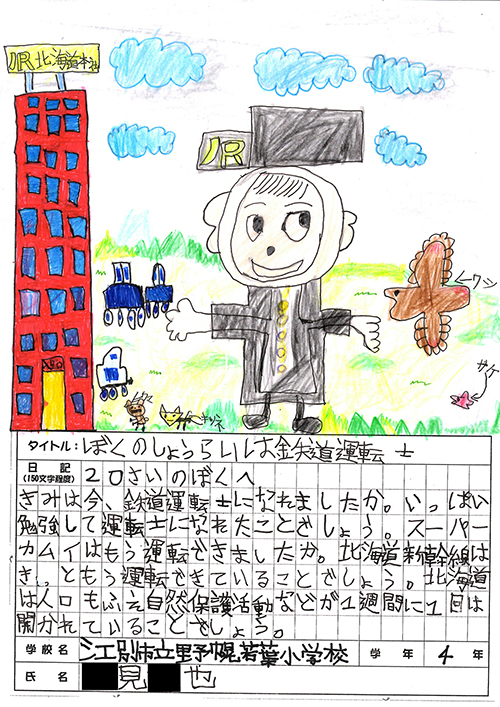 JR北海道本社
JR
←ワシ
サケ
←キツネ
タイトル:ぼくのしょうらいは鉄道運転士
日記
(150文字程度)
20さいのぼくへ
きみは今、鉄道運転士になれましたか。いっぱい
勉強して運転士になれたことでしょう。スーパー
カムイはもう運転できましたか。北海道新幹線は
きっともう運転できていることでしょう。北海道
は人口もふえ自然保護活動などが1週間に1回は
開かれていることでしょう。
学校名 江別市立野幌若葉小学校 学年 4年
氏名 見 也